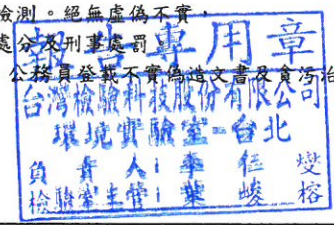 檢測。絕無虛偽不實，
處分及刑事處罰
公務員登載不實偽造文書及貪污治
報告專用章
台灣檢驗科技股份有限公司
環境實驗室-台北
負責人：李
檢驗室主管：葉 峻榕